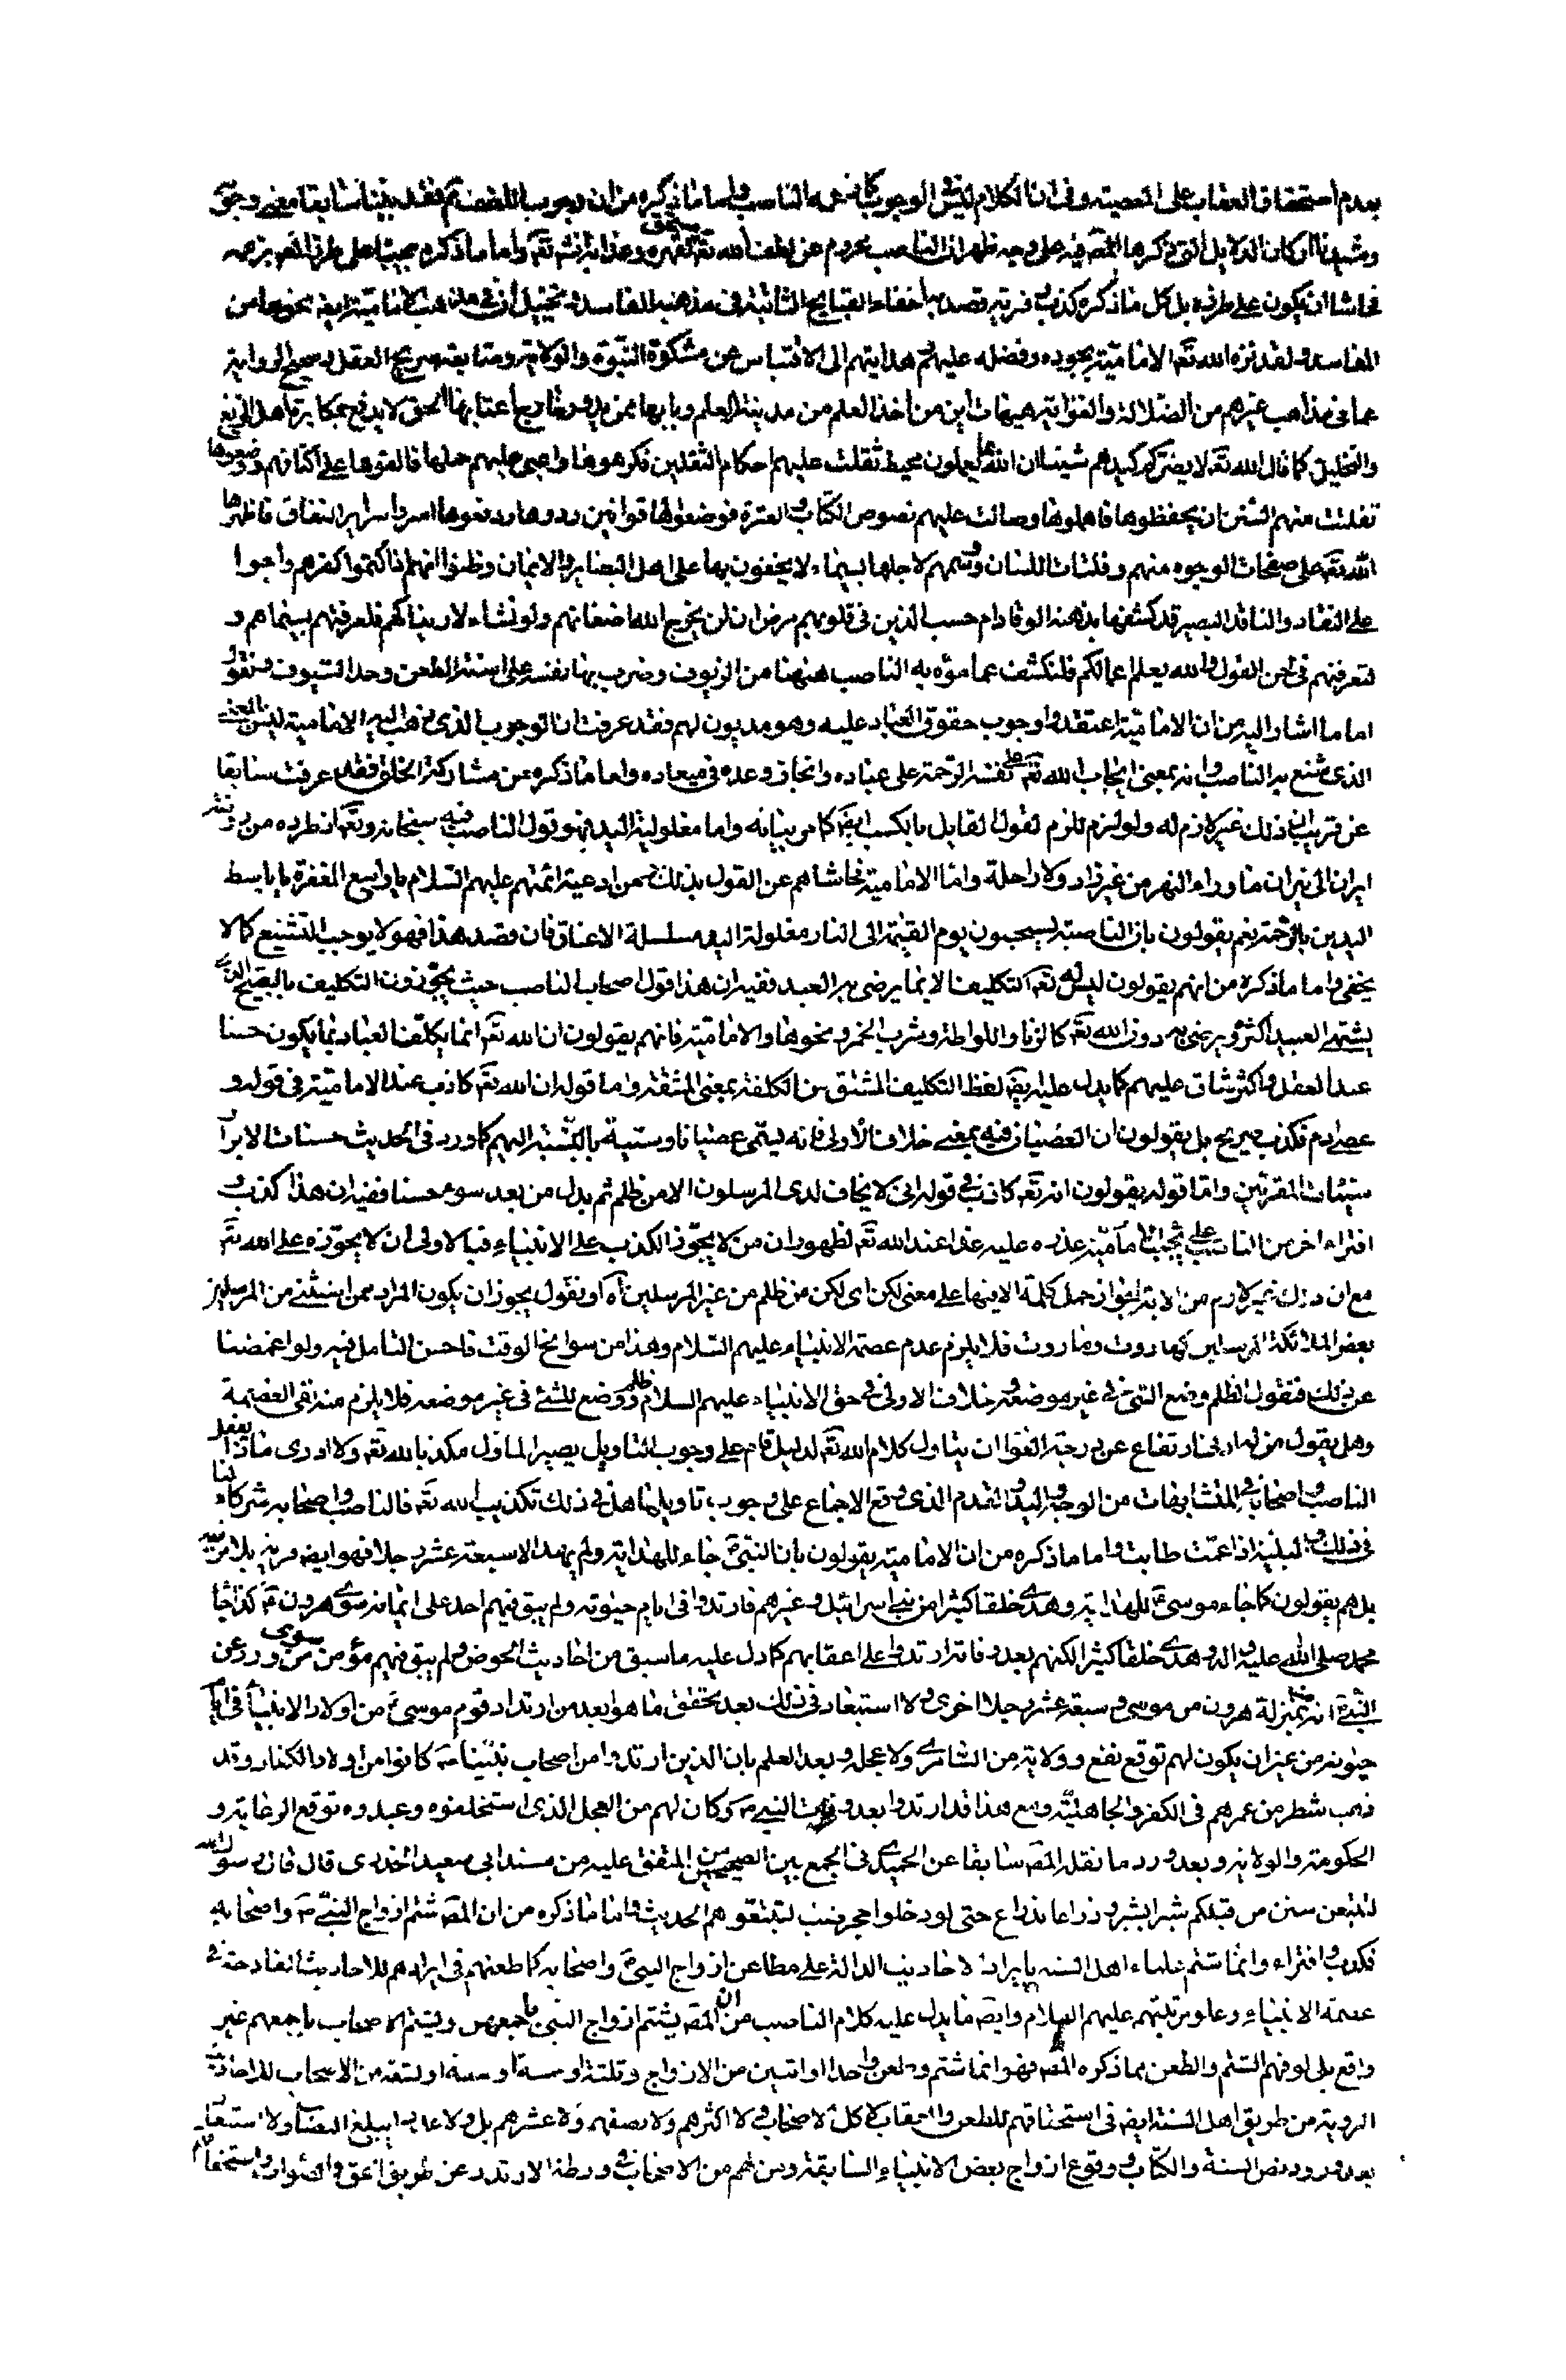 بعدم استحقاق العقاب على المعصية وفى ان الكلام ليس فى الوجوب كما زعمه الناصب واما ما ذكره من ان وجوب اللطف فقد بينا سابقا معنى وجوبه
وشيدنا اركان الدلايل التى ذكرها المص فيه على وجه ظهر ان الناصب محروم عن لطف الله تع مستحق لقهره وعذابه نش تع واما ما ذكره مجيبا على طرف المص بزعمه
فحاشا ان يكون على طرفه بل كل ما ذكره كذب وفرية قصد بها اخفاء القبايح الثابتة فى مذهبه الفاسد و تخييل ان فى مذهب الامامية ايضا نحوها من
المفاسد ولقد نزه الله تع الامامية بجوده وفضله عليهم هدايتهم الى الاقتباس من مشكوة النبوة والولاية ومتابعة صريح العقل وصحيح الرواية
عما فى مذاهب غيرهم من الضلالة والغواية هيهات اين من اخذ العلم من مدينة العلم وبابها ممن اعقابها الحق لا يدفع بمكابرة اهل الزيغ
والتخليق كما قال الله تع لا يضركم كيدهم شيئا ان الله بما يعملون محيط ثقلت عليهم احكام الثقلين فكرهوها واعيى عليهم حملها فالقوها على اكتافهم ووضعوها
تفلتت منهم السنن ان يحفظوها فاهملوها وصالت عليهم نصوص الكتاب والعترة فوضعوا لها قوانين ردوها ودفعوها اسروا سراير النفاق فاظهرها
الله تع على صفحات الوجوه منهم وفلتات اللسان ووسمهم لاجلها بسيماء لا يخفون بها على اهل البصاير والايمان وظنوا انهم اذا كتموا كفرهم واجوا
على النقاد والناقد البصير قد كشفها بذهنه الوقاد ام حسب الذين فى قلوبهم مرض ان لن يخرج الله اضغانهم ولو نشاء لاريناكهم فلعرفتهم بسيماهم و
لتعرفنهم فى لحن القول والله يعلم اعمالكم فلنكشف عما موه به الناصب هيهنا من الزيوف وضرب بها نفسه على اسنة الطعن وحد السيوف فنقول
اما ما اشار اليه من ان الامامية اعتقدوا وجوب حقوق العباد عليه وهو مديون لهم فقد عرفت ان الوجوب الذى ذهب اليه الامامية ليس بالمعنى
الذى شنع به الناصب وانه بمعنى ايجاب الله تع على نفسه الرحمة على عباده وانجاز وعده فى ميعاده واما ما ذكره من مشاركة الخلق فقد عرفت سابقا
عن قريب ان ذلك غير لازم له ولو لزم للزم لقول القايل بالكسب ايضا كما مر بيانه واما مغلولية اليد فهو قول الناصب فيه سبحانه وتع ان طرده من
ايران الى نيران ما وراء النهر من غير زاد ولا راحلة واما الامامية فحاشاهم عن القول بذلك ومن ادعية ائمتهم عليهم السلام يا واسع المغفرة يا باسط
اليدين بالرحمة نعم يقولون بان الناصبة يسحبون يوم القيمة الى النار مغلولة اليد مسلسلة الاعناق فان قصد هذا فهو لا يوجب التشنيع كما لا
يخفى واما ما ذكره من انهم يقولون ليس له تع التكليف الا بما يرضى به العبد ففيه ان هذا قول اصحاب الناصب حيث يجوزون التكليف بالقبيح الذى
يشتهى العبيد اكثره ويرضى به دون الله تع كالزنا واللواطة وشرب الخمر ونحوها والامامية فانهم يقولون ان الله تع انما يكلف العباد بما يكون حسنا
عند العقل واكثر شاق عليهم كما يدل عليه ايضا لفظ التكليف المشتق من الكلفة بمعنى المشقة واما قوله ان الله تع كاذب عند الامامية فى قوله و
عصى ادم فكذب صريح بل يقولون ان العصيان فيه بمعنى خلاف الاولى فانه يسمى عصيانا وسيئة بالنسبة اليهم كما ورد فى الحديث حسنات الابرار
سيئات المقربين واما قوله يقولون انه تع كاذب فى قوله انى لا يخاف لدى المرسلون الا من ظلم ثم بدل من بعد سوء حسنا ففيه ان هذا كذب و
افتراء اخر من الناصب على الامامية عليه عند الله تع لظهور ان من لا يجوز الكذب على الانبياء فبالاولى ان لا يجوزه على الله تع
مع ان ذلك غير لازم من الاية لجواز حمل كلمة الا فيها على معنى لكن اى لكن من ظلم من غير المرسلين اه او نقول يجوز ان يكون المراد ممن استثنى من المرسلين
بعض الملائكة المرسلين كهاروت وماروت فلا يلزم عدم عصمة الانبياء عليهم السلام وهذا من سوانح الوقت فاحسن التامل فيه ولو اغمضنا
عن ذلك فنقول الظلم وضع الشئ فى غير موضعه وخلاف الاولى فى حق الانبياء عليهم السلام ظلم ووضع للشئ فى غير موضعه فلا يلزم منه نفى العصمة
وهل يقول من له ادنى ارتفاع عن درجة العوام ان يتاول كلام الله تع لدليل قام على وجوب التاويل يصير الماول مكذبا لله تع ولا ادرى ماذا يفعل
الناصب واصحابه فى المتشابهات من الوجه واليد والقدم الذى وقع الاجماع على وجوب تاويلها هل فى ذلك تكذيب لله تع فالناصب واصحابه شركاء لنا
فى ذلك والبلية اذا عمت طابت واما ما ذكره من ان الامامية يقولون بان النبى ص جاء للهداية ولم يهد الا سبعة عشر رجلا فهو ايضا فرية بلا مرية
بل هم يقولون كما جاء موسى للهداية وهدى خلقا كثيرا من بنى اسرائيل وغيرهم فارتدوا فى ايام حيوته ولم يبق فيهم احد على ايمانه سوى هرون ع كذا جاء
محمد صلى الله عليه واله وهدى خلقا كثيرا لكنهم بعد وفاته ارتدوا على اعقابهم كما دل عليه ما سبق من احاديث الحوض ولم يبق فيهم مؤمن سوى من ورد عن
النبى ص انه منه بمنزلة هرون من موسى وسبعة عشر رجلا اخرى ولا استبعاد فى ذلك بعد تحقق ما هو ابعد من ارتداد قوم موسى ع من اولاد الانبياء فى ايام
حيوته من غير ان يكون لهم توقع نفع وولاية من السامرى ولا عجل وبعد العلم بان الذين ارتدوا من اصحاب نبينا ص كانوا من اولاد الكفار وقد
ذهب شطر من عمرهم فى الكفر والجاهلية ومع هذا قد ارتدوا بعد وفات النبى ص وكان لهم من العجل الذى استخلفوه وعبدوه توقع الرعاية و
الحكومة والولاية وبعد ورد ما نقله المص سابقا عن الحميدى فى الجمع بين الصحيحين من المتفق عليه من مسند ابى سعيد الخدرى قال قال رسول الله
لتتبعن سنن من قبلكم شبرا بشبر وذراعا بذراع حتى لو دخلوا جحر ضب لتبعتموهم الحديث واما ما ذكره من ان المص شتم ازواج النبى ص واصحابه
فكذب وافتراء وانما شتم علماء اهل السنة بايراد الاحاديث الدالة على مطاعن ازواج النبى ص واصحابه كما طعنهم فى ايرادهم للاحاديث القادحة فى
عصمة الانبياء وعلو مرتبتهم عليهم السلام وايضا ما يدل عليه كلام الناصب من ان المص يشتم ازواج النبى باجمعهن ويشتم الاصحاب باجمعهم غير
واقع بل لو فهم الشتم والطعن مما ذكره المص فهو انما شتم وطعن واحدا او اثنين من الازواج وثلثة او خمسة او ستة او تسعة من الاصحاب للاحاديث
المروية من طريق اهل السنة ايضا فى استحقاقهم للطعن والعقاب لا كل الاصحاب ولا اكثرهم ولا نصفهم ولا عشرهم بل ولا ما يبلغ النصاب ولا استبعاد
بعد ورود نص السنة والكتاب و وقوع ازواج بعض الانبياء السابقة ومن لهم من الاصحاب فى ورطة الارتداد عن طريق الحق والصواب واستحقاق